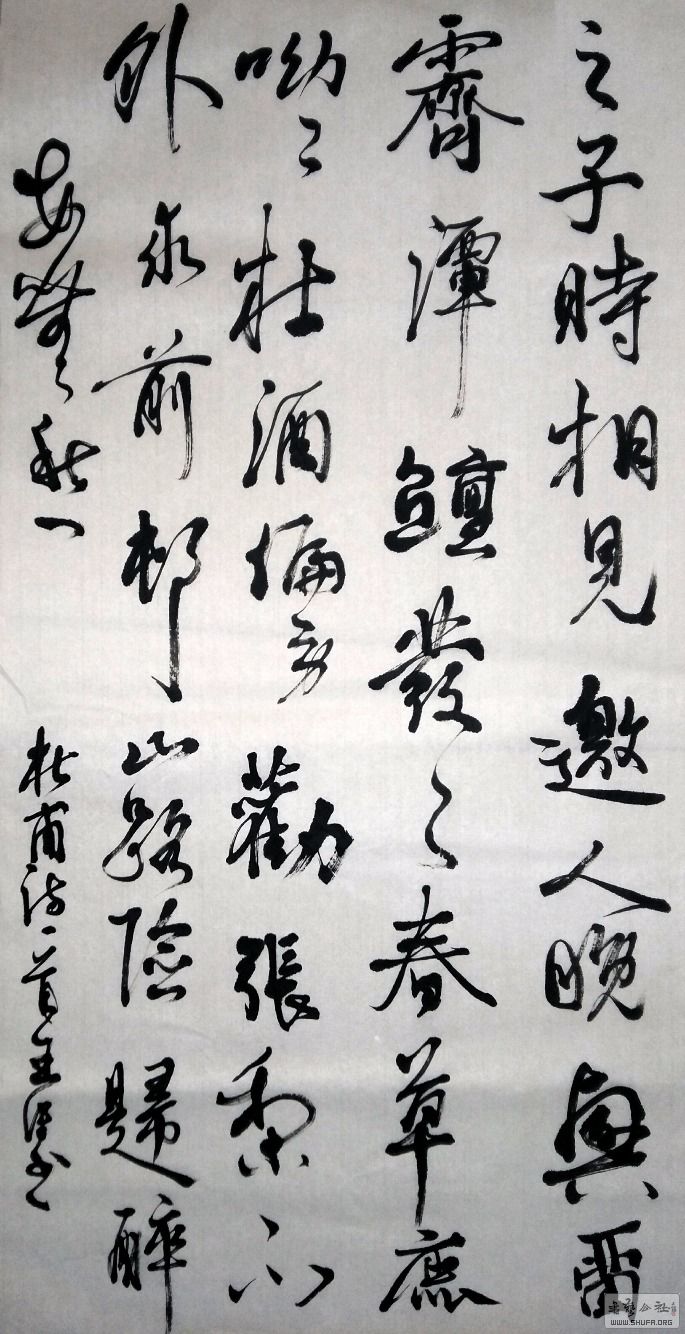 之子時相見邀人晚興留
霽潭鱣發〻春草鹿
呦〻杜酒偏勞勸張梨不
外求前邨山路險歸醉
每無愁
杜甫詩一首
書艺公社
WWW.SHUFA.ORG